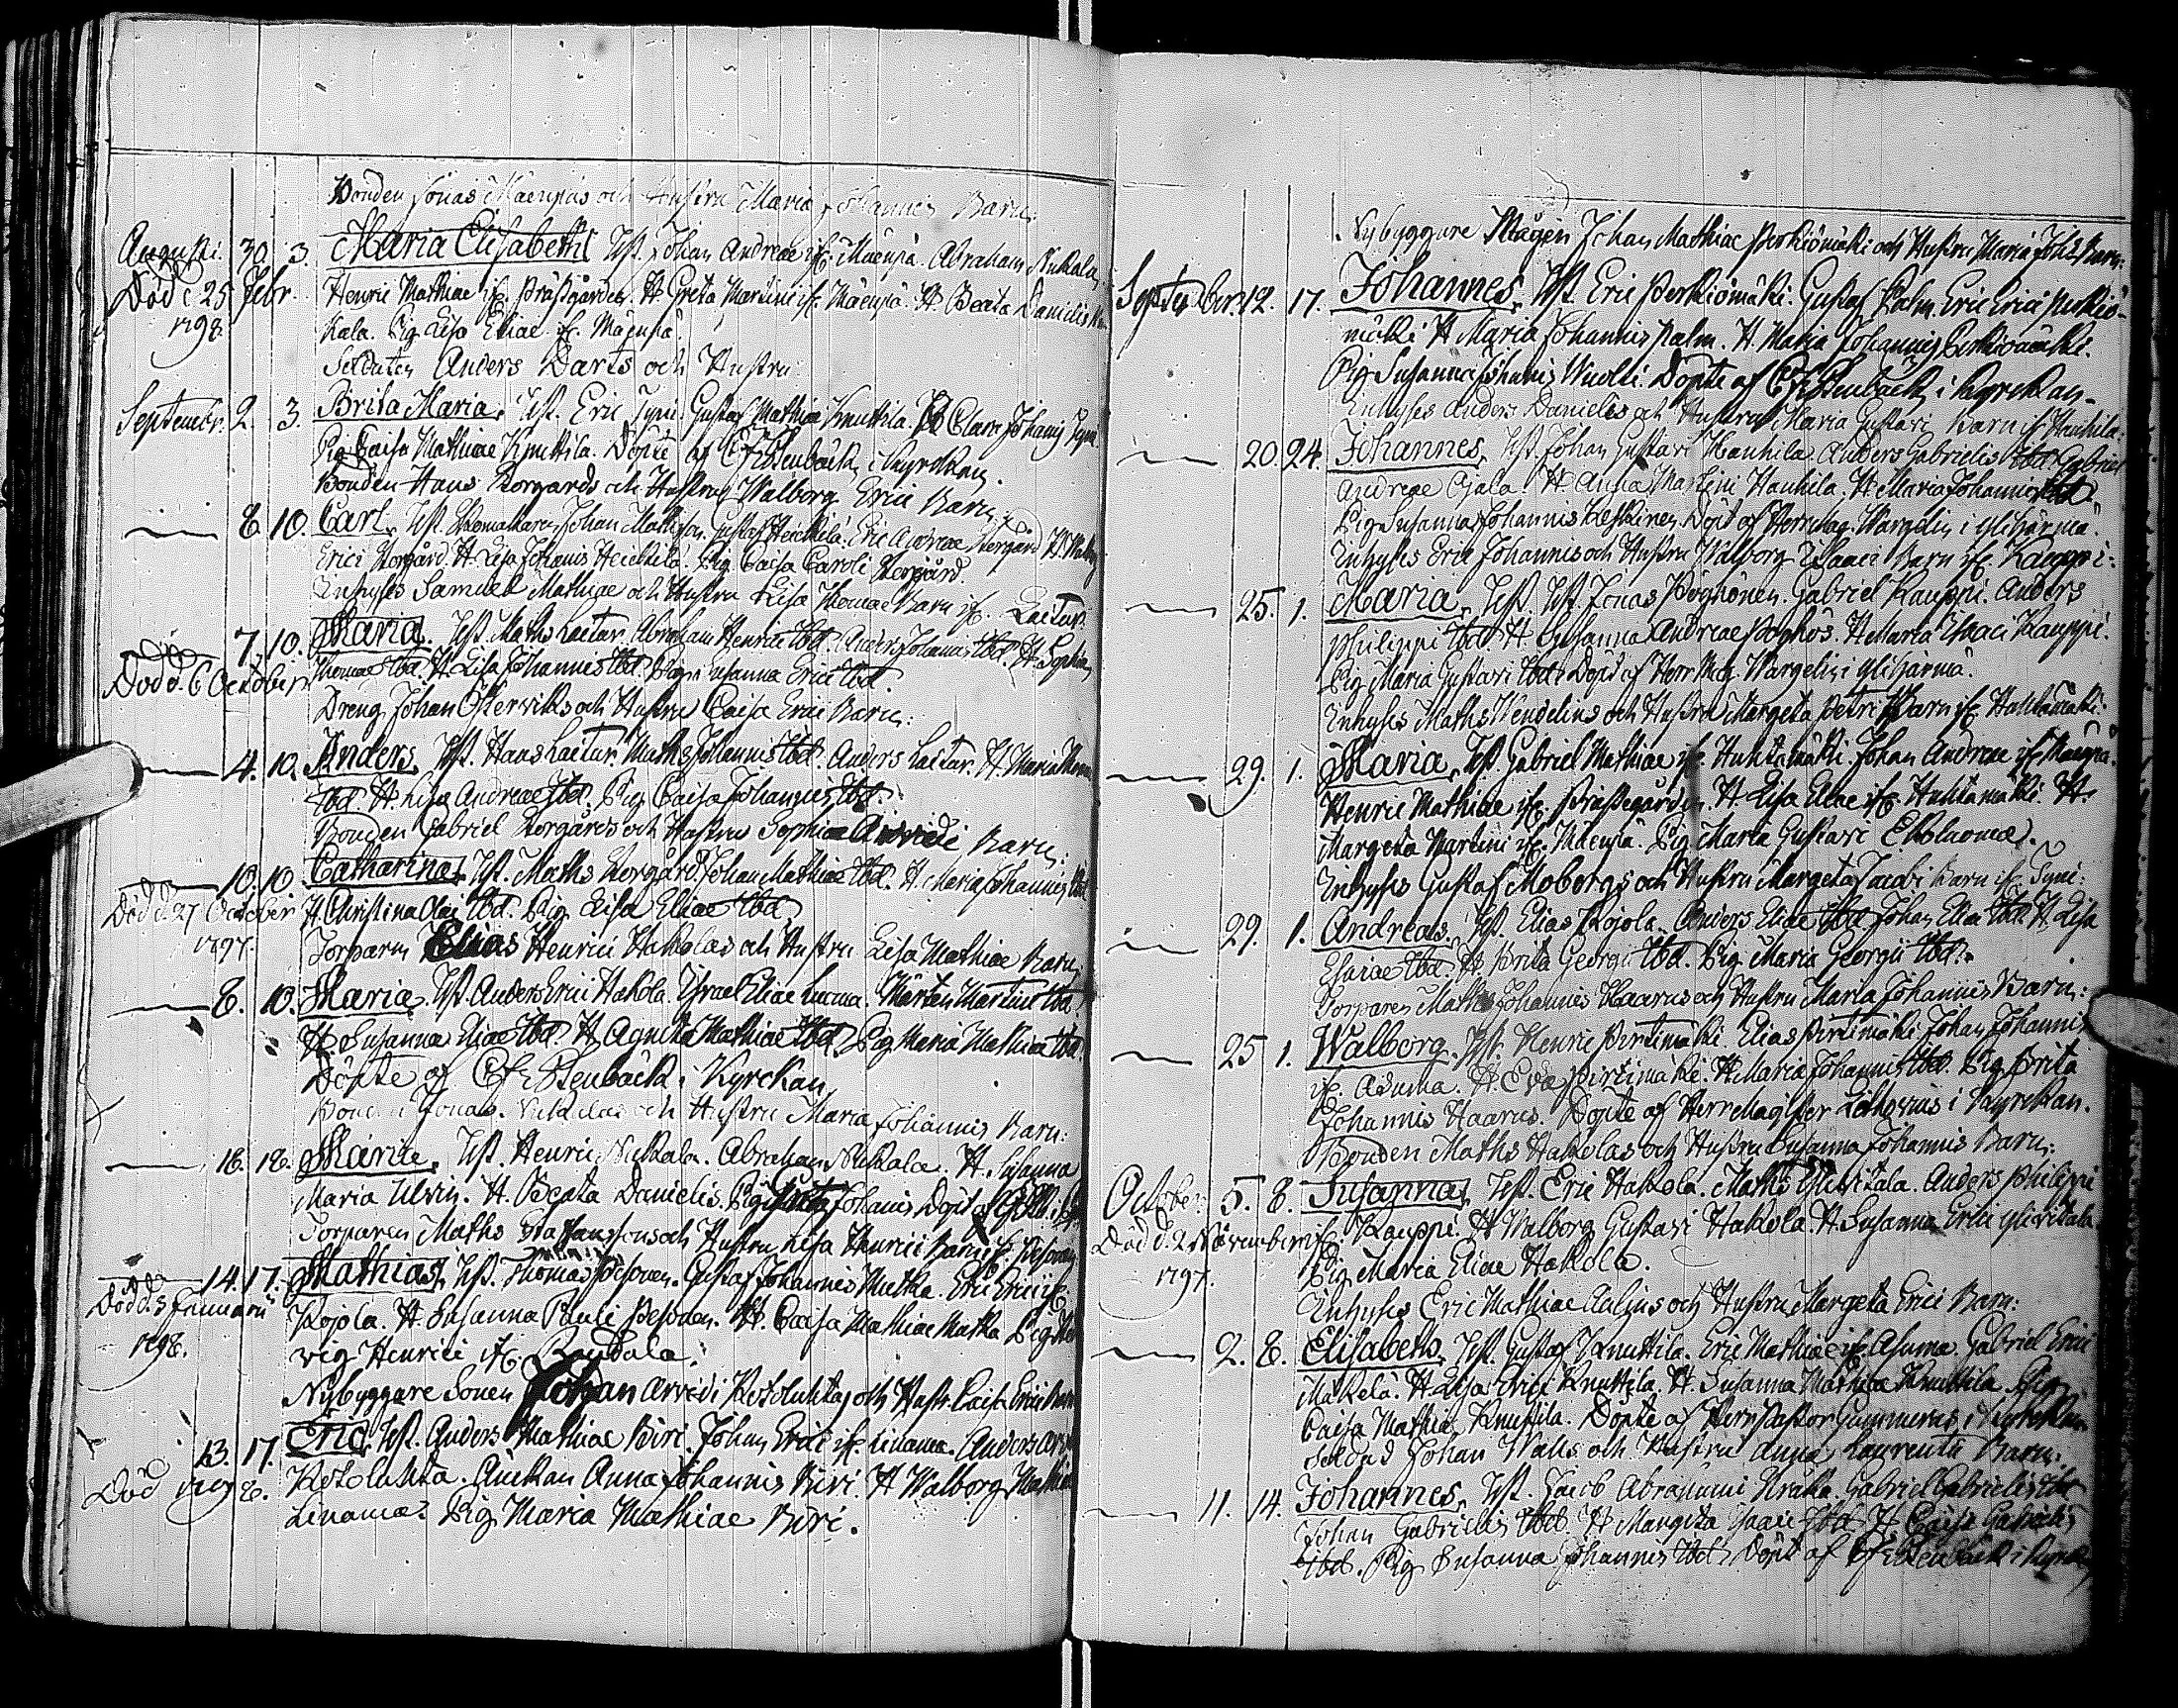 Bonden Jonas Mäenpäs och Hustru Maria Johannis Barn:
Augusti. 30. 3. Maria Elisabeth, Tst. Johan Andreae if. Mäenpä. Abraham Nukala,
Död d. 25 Febr. Henric Mathiae if. Prästgården. H. Greta Martini if. Mäenpä. H. Beata Danielis Nu-
1798. kala. Pig. Lisa Eliae if. Mäenpä.
Soldaten Anders Darts och Hustru
Septembr. 2. 3. Brita Maria, Tst. Eric Tyni. Gustaf Mathiae Knuttila. H. Clara Johannis Tyni.
Pig. Caisa Mathiae Knuttila. Döpte af Cf. Stenbäck, i Kyrckan.
Bonden Hans Storgårds och Hustru Walborg Erici Barn:
8. 10. Carl, Tst. Skomakaren Johan Mathsson. Gustaf Heickilä. Eric Andreae Storgård H. Walborg
Erici Storgård. H. Lisa Johannis Heickilä. Pig. Caisa Caroli Storgård.
Inhyses Samuel Mathiae och Hustru Lisa Thomae Barn if. Laitur.
7. 10. Maria. Tst. Maths Laitur. Abraham Henrici Ibd. Anders Johannis Ibd. H. Sophia
Död d. 6 October Thomae Ibd. H. Lisa Johannis Ibd. Pig. Susanna Erici Ibd.
Dreng Johan Österviks och Hustru Caisa Erici Barn:
4. 10. Anders, Tst. Hans Laitur. Maths Johannis Ibd. Anders Laitur. H. Maria Thomae
Ibd. H. Lisa Andreae Ibd. Pig. Caisa Johannis Ibd.
Bonden Gabriel Storgårds och Hustru Sophia Arvedi Barn:
10. 10. Catharina, Tst. Maths Storgård. Johan Mathiae Ibd. H. Maria Johannis Ibd
Död d. 27 October H. Christina Olai Ibd. Pig. Lisa Eliae Ibd.
1797. Torparen Elias Henrici Hakolas och Hustru Lisa Mathiae Barn:
8. 10. Maria, Tst. Anders Erici Hakola. Israel Eliae Luoma. Mårten Martini Ibd.
H. Susanna Eliae Ibd. H. Agnita Mathiae Ibd. Pig. Maria Mathiae Ibd.
Döpte af Cf. Stenbäck i Kyrckan,
Bonden Jonas Nukalas och Hustru Maria Johannis Barn:
18. 18. Maria, Tst. Henric Nukala. Abraham Nukala. H. Susanna
Maria Ulvin. H. Beata Danielis. Pig. Greta Johannis Döpt af
Torparen Maths Staffanssons och Hustru Lisa Henrici Barn if. Pesonen
14. 17. Mathias, Tst. Thomas Pesonen. Gustaf Johannis Mutka. Eric Erici if.
Död d. 3 Januarii Kojola. H. Susanna Pauli Pesonen. H. Caisa Mathiae Mutka Pig. Hed
1798. vig Henrici if. Raudala.
Nybyggare Sonen Johan Arvedi Ketoluhtas och Hustr. Caisa Erici Barn
13. 17. Eric, Tst. Anders Mathiae Biri. Johan Erici if. Linama. Anders Arv
Död 1798. Ketoluhta. Änckan Anna Johannis Biri. H. Walborg Mathiae
Linama. Pig. Maria Mathiae Biri.
Nybyggare Mågen Johan Mathiae Perkiömäki och Hustru Maria Joh:s Barn:
September. 12. 17. Johannes, Tst. Eric Perkiömäki. Gustaf Palm. Eric Erici Perkiö-
mäki H. Maria Johannis Palm. H. Maria Johannis Perkiömäki.
Pig. Susanna Johannis Wuolti. Döpte af Cf. Stenbäck, i Kyrckan.
Inhyses Anders Danielis och Hustru Maria Gustavi Barn if. Hanhila:
20. 24. Johannes, Tst. Johan Gustavi Hanhila. Anders Gabrielis Ibd. Gabriel
Andreae Ojala. H. Anna Martini Hanhila. H. Maria Johannis Ibd.
Pig. Susanna Johannis Keskinen. Döpt af Herr Mag. Wargelin i Ylihärmä.
Inhyses Eric Johannis och Hustru Walborg Isaaci Barn if. Kauppi:
25. 1. Maria, Tst. Jonas Pöyhönen. Gabriel Kauppi. Anders
Philippi Ibd. H. Susanna Andreae Pöyhös. H. Maria Isaaci Kauppi.
Pig. Maria Gustavi Ibd. Döpt af Herr Mag. Wargelin i Ylihärmä.
Inhyses Maths Wendelins och Hustru Margeta Petri Barn if. Huhtamäki:
29. 1. Maria, Tst. Gabriel Mathiae if. Huhtamäki. Johan Andreae if. Mäenpä.
Henric Mathiae if. Prästegården. H. Lisa Eliae if. Huhtamäki. H.
Margeta Martini if. Mäenpä. Pig. Maria Gustavi Ekoluoma.
Inhyses Gustaf Mobergs och Hustru Margeta Jacobi Barn if. Tyni:
29. 1. Andreas. Tst. Elias Kojola. Anders Eliae Ibd. Johan Eliae Ibd. H. Lisa
Esaiae Ibd. H. Brita Georgii Ibd. Pig. Maria Georgii Ibd.
Torparen Maths Johannis Haarus och Hustru Maria Johannis Barn:
25 1. Walborg. Tst. Henric Pirtimäki. Elias Pirtimäki Johan Johannis
if. Asuma. H. Eva Pirtimäki. H. Maria Johannis Ibd. Pig. Brita
Johannis Haarus. Döpte af Herr Magister Lithovius i Kyrckan.
Bonden Maths Hakolas och Hustru Susanna Johannis Barn:
October. 5. 8. Susanna, Tst. Eric Hakola. Maths Ylivitala. Anders Philippi
Död d. 2 November if. Kauppi. H. Walborg Gustavi Hakola. H. Susanna Erici Ylivitala
1797. Pig. Maria Eliae Hakola.
Inhyses Eric Mathiae Aaljus och Hustru Margeta Erici Barn:
2. 8. Elisabeth, Tst. Gustaf Knuttila. Eric Mathiae if. Asuma. Gabriel Erici
Mäkelä. H. Lisa Erici Knuttila. H. Susanna Mathiae Knuttila Pig.
Caisa Mathiae Knuttila. Döpte af Herr Pastor Gummerus i Kyrckan
Soldat Johan Walls och Hustru Anna Laurentii Barn:
11. 14. Johannes, Tst. Jacob Abrahami Kråka. Gabriel Gabrielis Ibd
Johan Gabrielis Ibd. H. Margeta Isaaci Ibd H. Caisa Gabrielis
Ibd. Pig. Susanna Johannis Ibd. Döpt af Cf. Stenbäck i Kyrck